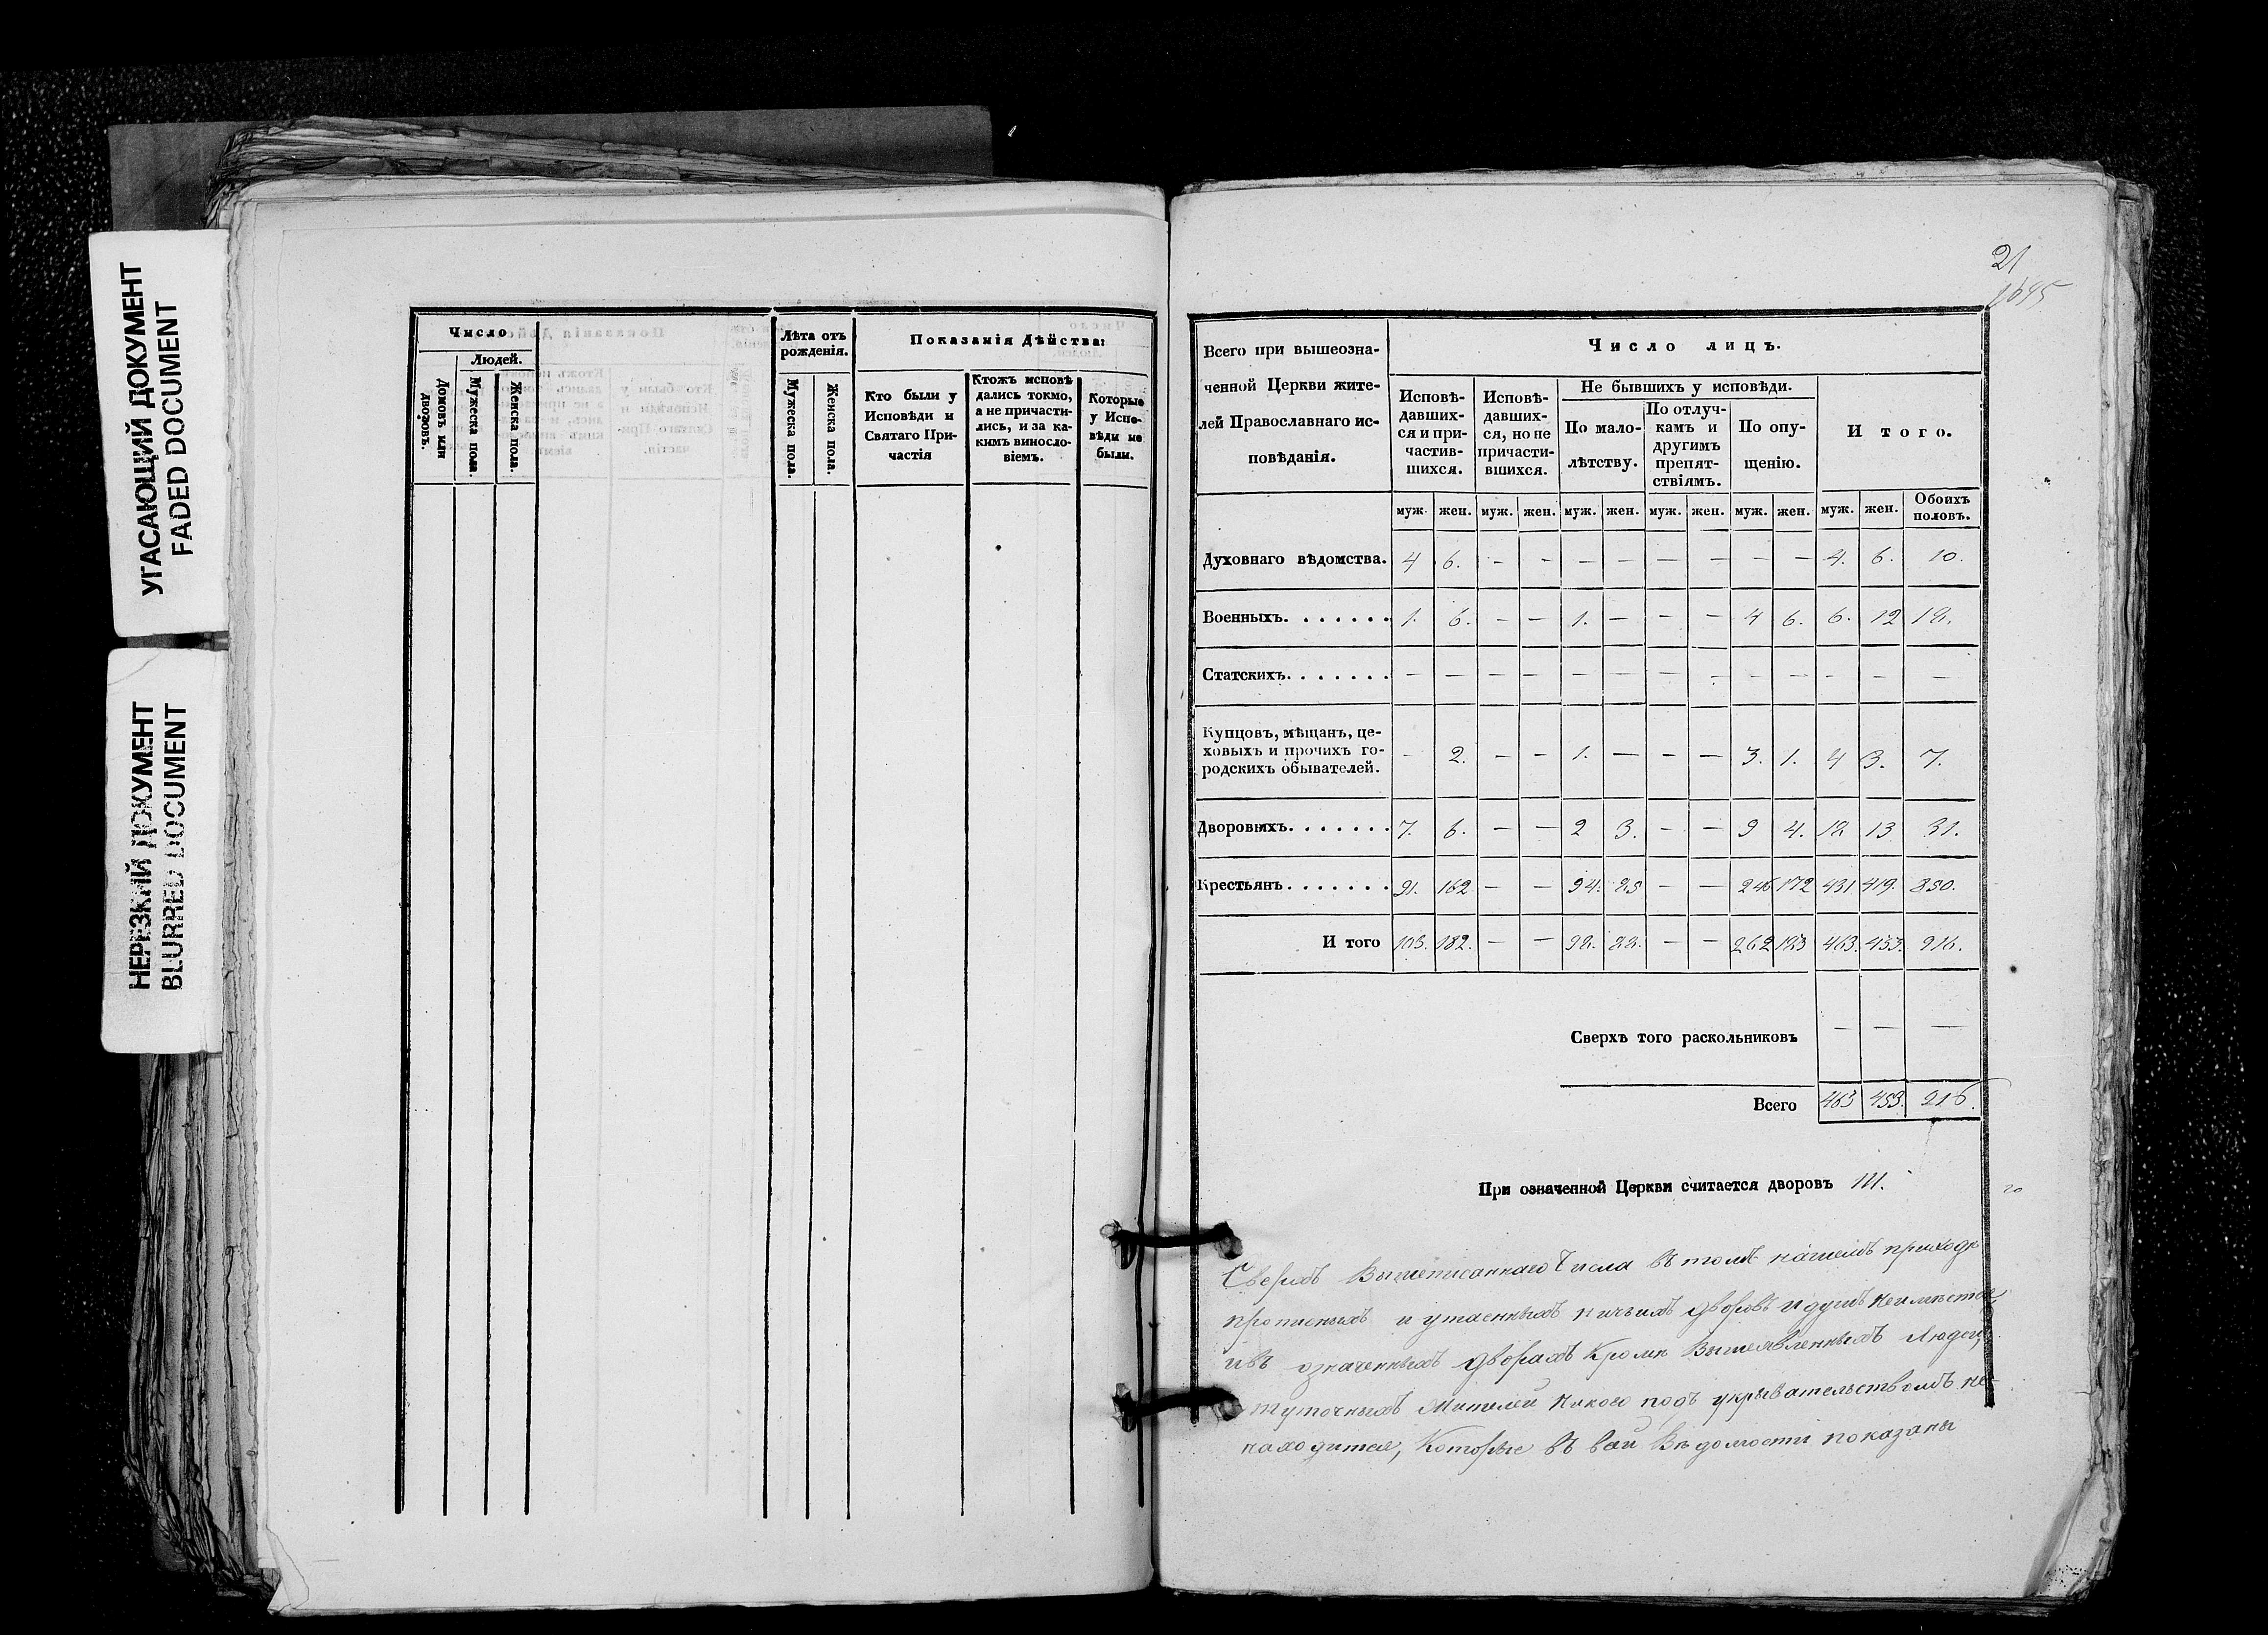 УГАСАЮЩИЙ ДОКУМЕНТ
FADED DOCUMENT
НЕРЕЗКИЙ ДОКУМЕНТ
BLURRED DOCUMENT
Число
Людей.
Домовъ или дворовъ.
Мужеска пола.
Женска пола.
Лѣта отъ рожденія.
Мужеска пола.
Женска пола.
Показанія Дѣйства:
Кто были у
Исповѣди и
Святаго При-
частія
Ктожъ исповѣ
дались токмо,
а не причасти-
лись, и за ка-
кимъ винослo-
віемъ.
Которые
у Испо-
вѣди не
были.
21
Всего при вышеозна-
ченной Церкви жите-
лей Православнаго ис-
повѣданія.
Число лицъ.
Исповѣ-
давших-
ся и при-
частив-
шихся.
Исповѣ-
давших-
ся, но не
причасти-
вшихся.
Не бывшихъ у исповѣди.
По мало-
лѣтству.
По отлуч-
камъ и
другимъ
препят-
ствіямъ.
По опу-
щенію.
И того.
муж. жен. муж. жен. муж. жен. муж. жен. муж. жен. муж. жен. Обоихъ половъ.
Духовнаго вѣдомства. 4 6. — — — — — — — — 4. 6. 10.
Военныхъ. . . . . . . 1. 6. — — 1. — — — 4 6. 6. 12 18.
Статскихъ. . . . . . . — — — — — — — — — — — — —
Купцовъ, мѣщанъ, це-
ховыхъ и прочихъ го-
родскихъ обывателей. — 2. — — 1. — — — 3. 1. 4 3. 7.
Дворовыхъ. . . . . . . 7. 6. — — 2 3. — — 9 4. 18 13 31.
Крестьянъ. . . . . . . 91. 162 — — 94. 85 — — 246 172 431. 419. 850.
И того 103. 182. — — 98. 88. — — 262 183 463. 453. 916.
Сверхъ того раскольниковъ — — —
Всего 463 453. 916.
При означенной Церкви считается дворовъ 111.
Сверхъ вышеписаннаго числа въ томъ нашемъ приходѣ
прописныхъ и утаенныхъ ничьихъ дворовъ и душъ неимѣется,
ивъ означенныхъ дворахъ кромѣ вышеявленныхъ людей,
туточныхъ жителей никого подъ укрывательствомъ не-
находится, которые въ сей вѣдомости показаны